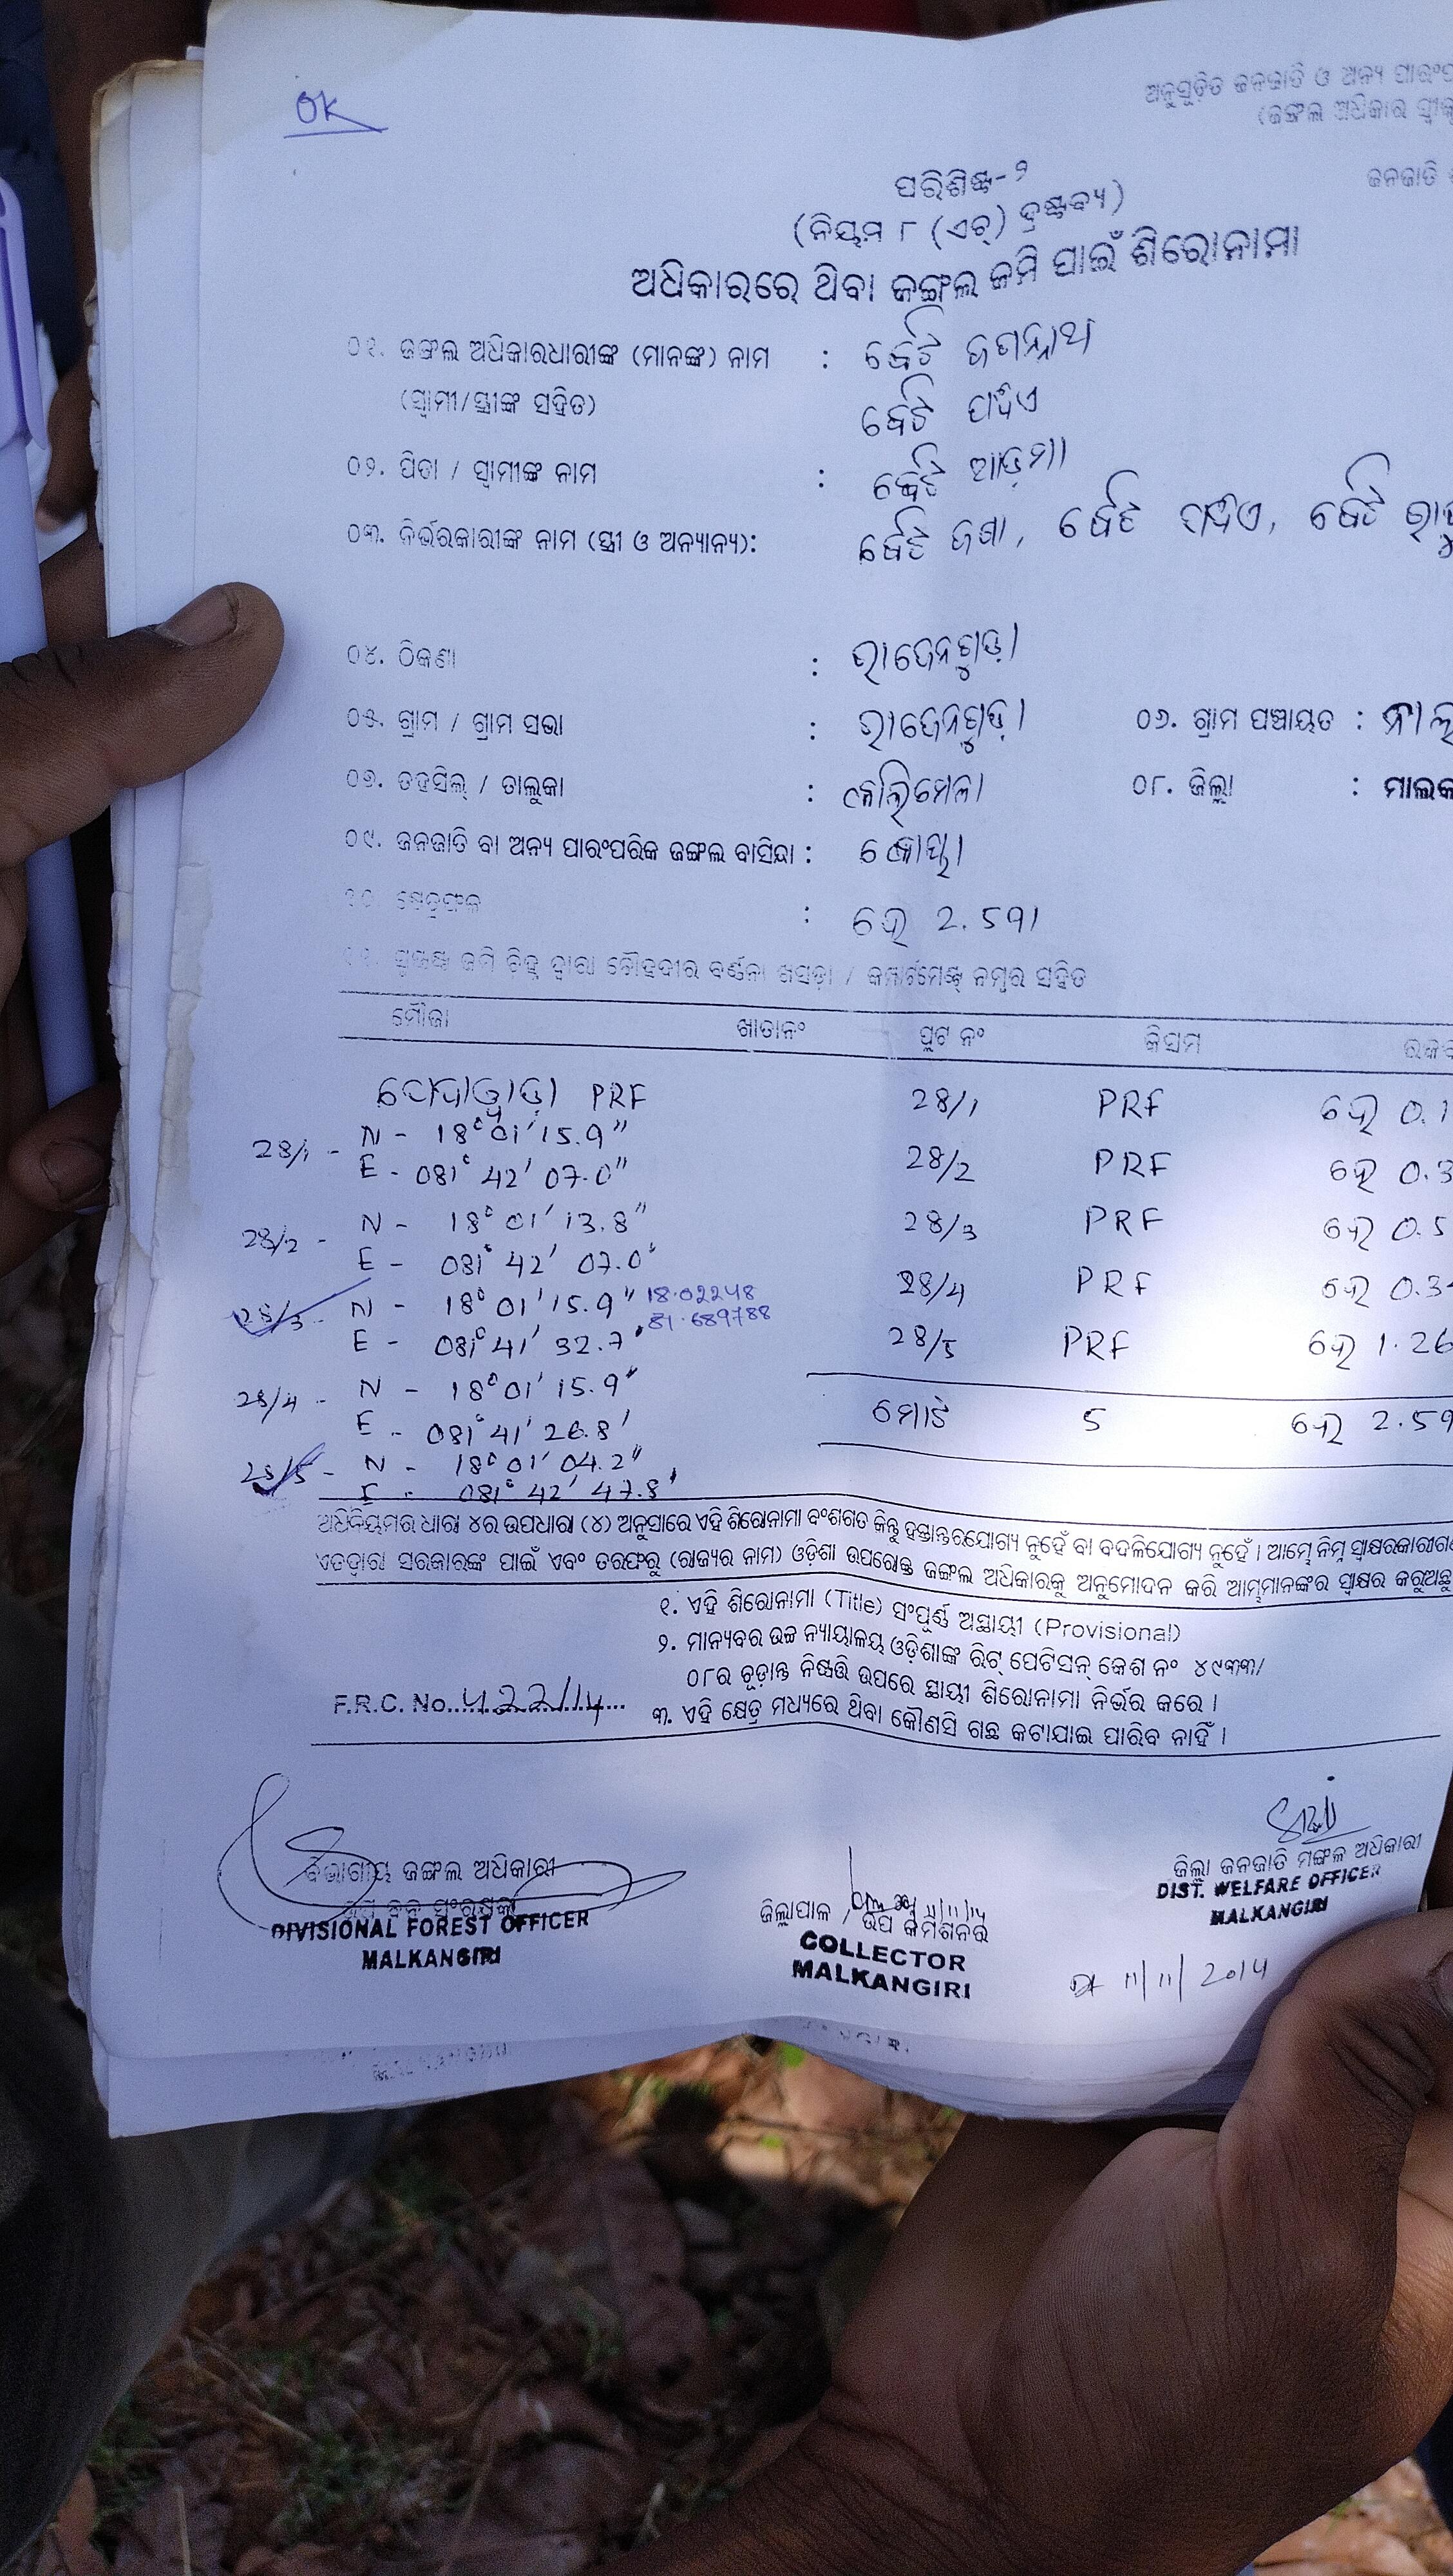 OK
ଅନୁସୂଚିତ ଜନଜାତି ଓ ଅନ୍ୟ
(ଜଙ୍ଗଲ ଅଧିକାର
ଜନଜାତି
ପରିଶିଷ୍ଟ-୨
(ନିୟମ ୮ (ଏଚ୍) ଦ୍ରଷ୍ଟବ୍ୟ)
ଅଧିକାରରେ ଥିବା ଜଙ୍ଗଲ ଜମି ପାଇଁ ଶିରୋନାମା
୦୧. ଜଙ୍ଗଲ ଅଧିକାରଧାରୀଙ୍କ (ମାନଙ୍କ) ନାମ : ଜଗନ୍ନାଥ
(ସ୍ୱାମୀ/ସ୍ତ୍ରୀଙ୍କ ସହିତ)
୦୨. ପିତା / ସ୍ୱାମୀଙ୍କ ନାମ :
୦୩. ନିର୍ଭରକାରୀଙ୍କ ନାମ (ସ୍ତ୍ରୀ ଓ ଅନ୍ୟାନ୍ୟ):
୦୪. ଠିକଣା : ରାଜେନଗୁଡ଼ା
୦୫. ଗ୍ରାମ / ଗ୍ରାମ ସଭା : ରାଜେନଗୁଡ଼ା ୦୬. ଗ୍ରାମ ପଞ୍ଚାୟତ :
୦୭. ତହସିଲ୍ / ତାଲୁକା : କାଲିମେଳା ୦୮. ଜିଲ୍ଲା :
୦୯. ଜନଜାତି ବା ଅନ୍ୟ ପାରଂପରିକ ଜଙ୍ଗଲ ବାସିନ୍ଦା : କୋୟା
୧୦. କ୍ଷେତ୍ରଫଳ : ହେ 2.591
ଜମି ଚିହ୍ନ ଦ୍ୱାରା ଚୌହଦୀର ବର୍ଣ୍ଣନା ଖସଡ଼ା / କମ୍ପାର୍ଟମେଣ୍ଟ୍ ନମ୍ବର ସହିତ
ମୌଜା ଖାତାନଂ ପ୍ଲଟ ନଂ କିସମ
PRF 28/1 PRF ହେ 0.1
28/1 - N - 18° 01' 15.9"
E - 081° 42' 07.0" 28/2 PRF ହେ 0.3
28/2 - N - 18° 01' 13.8" 28/3 PRF ହେ 0.5
E - 081° 42' 07.0"
28/3 - N - 18° 01' 15.9" 18.02248 28/4 PRF ହେ 0.34
E - 081° 41' 32.7" 81.689788 28/5 PRF ହେ 1.26
28/4 - N - 18° 01' 15.9"
E - 081° 41' 26.8' ମୋଟ 5 ହେ 2.59
28/5 - N - 18° 01' 04.2"
E - 081° 42' 47.8'
ଅଧିନିୟମର ଧାରା ୪ର ଉପଧାରା (୪) ଅନୁସାରେ ଏହି ଶିରୋନାମା ବଂଶଗତ କିନ୍ତୁ ହସ୍ତାନ୍ତରଯୋଗ୍ୟ ନୁହେଁ ବା ବଦଳିଯୋଗ୍ୟ ନୁହେଁ । ଆମ୍ଭେ ନିମ୍ନ ସ୍ୱାକ୍ଷରକାରୀଗଣ
ଏତଦ୍ୱାରା ସରକାରଙ୍କ ପାଇଁ ଏବଂ ତରଫରୁ (ରାଜ୍ୟର ନାମ) ଓଡ଼ିଶା ଉପରୋକ୍ତ ଜଙ୍ଗଲ ଅଧିକାରକୁ ଅନୁମୋଦନ କରି ଆମ୍ଭମାନଙ୍କର ସ୍ୱାକ୍ଷର କରୁଅଛୁ
୧. ଏହି ଶିରୋନାମା (Title) ସଂପୂର୍ଣ୍ଣ ଅସ୍ଥାୟୀ (Provisional)
୨. ମାନ୍ୟବର ଉଚ୍ଚ ନ୍ୟାୟାଳୟ ଓଡ଼ିଶାଙ୍କ ରିଟ୍ ପେଟିସନ୍ କେଶ ନଂ ୪୯୩୩/
୦୮ର ଚୂଡ଼ାନ୍ତ ନିଷ୍ପତ୍ତି ଉପରେ ସ୍ଥାୟୀ ଶିରୋନାମା ନିର୍ଭର କରେ ।
F.R.C. No. 422/14 ୩. ଏହି କ୍ଷେତ୍ର ମଧ୍ୟରେ ଥିବା କୌଣସି ଗଛ କଟାଯାଇ ପାରିବ ନାହିଁ ।
ବିଭାଗୀୟ ଜଙ୍ଗଲ ଅଧିକାରୀ
DIVISIONAL FOREST OFFICER
MALKANGIRI
11/11/14
ଜିଲ୍ଲାପାଳ / ଉପ କମିଶନର
COLLECTOR
MALKANGIRI
ଜିଲ୍ଲା ଜନଜାତି ମଙ୍ଗଳ ଅଧିକାରୀ
DIST. WELFARE OFFICER
MALKANGIRI
11/11/2014